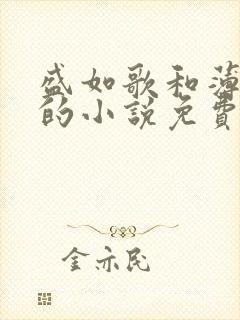 盛如歌和薄
的小说免費
金亦民